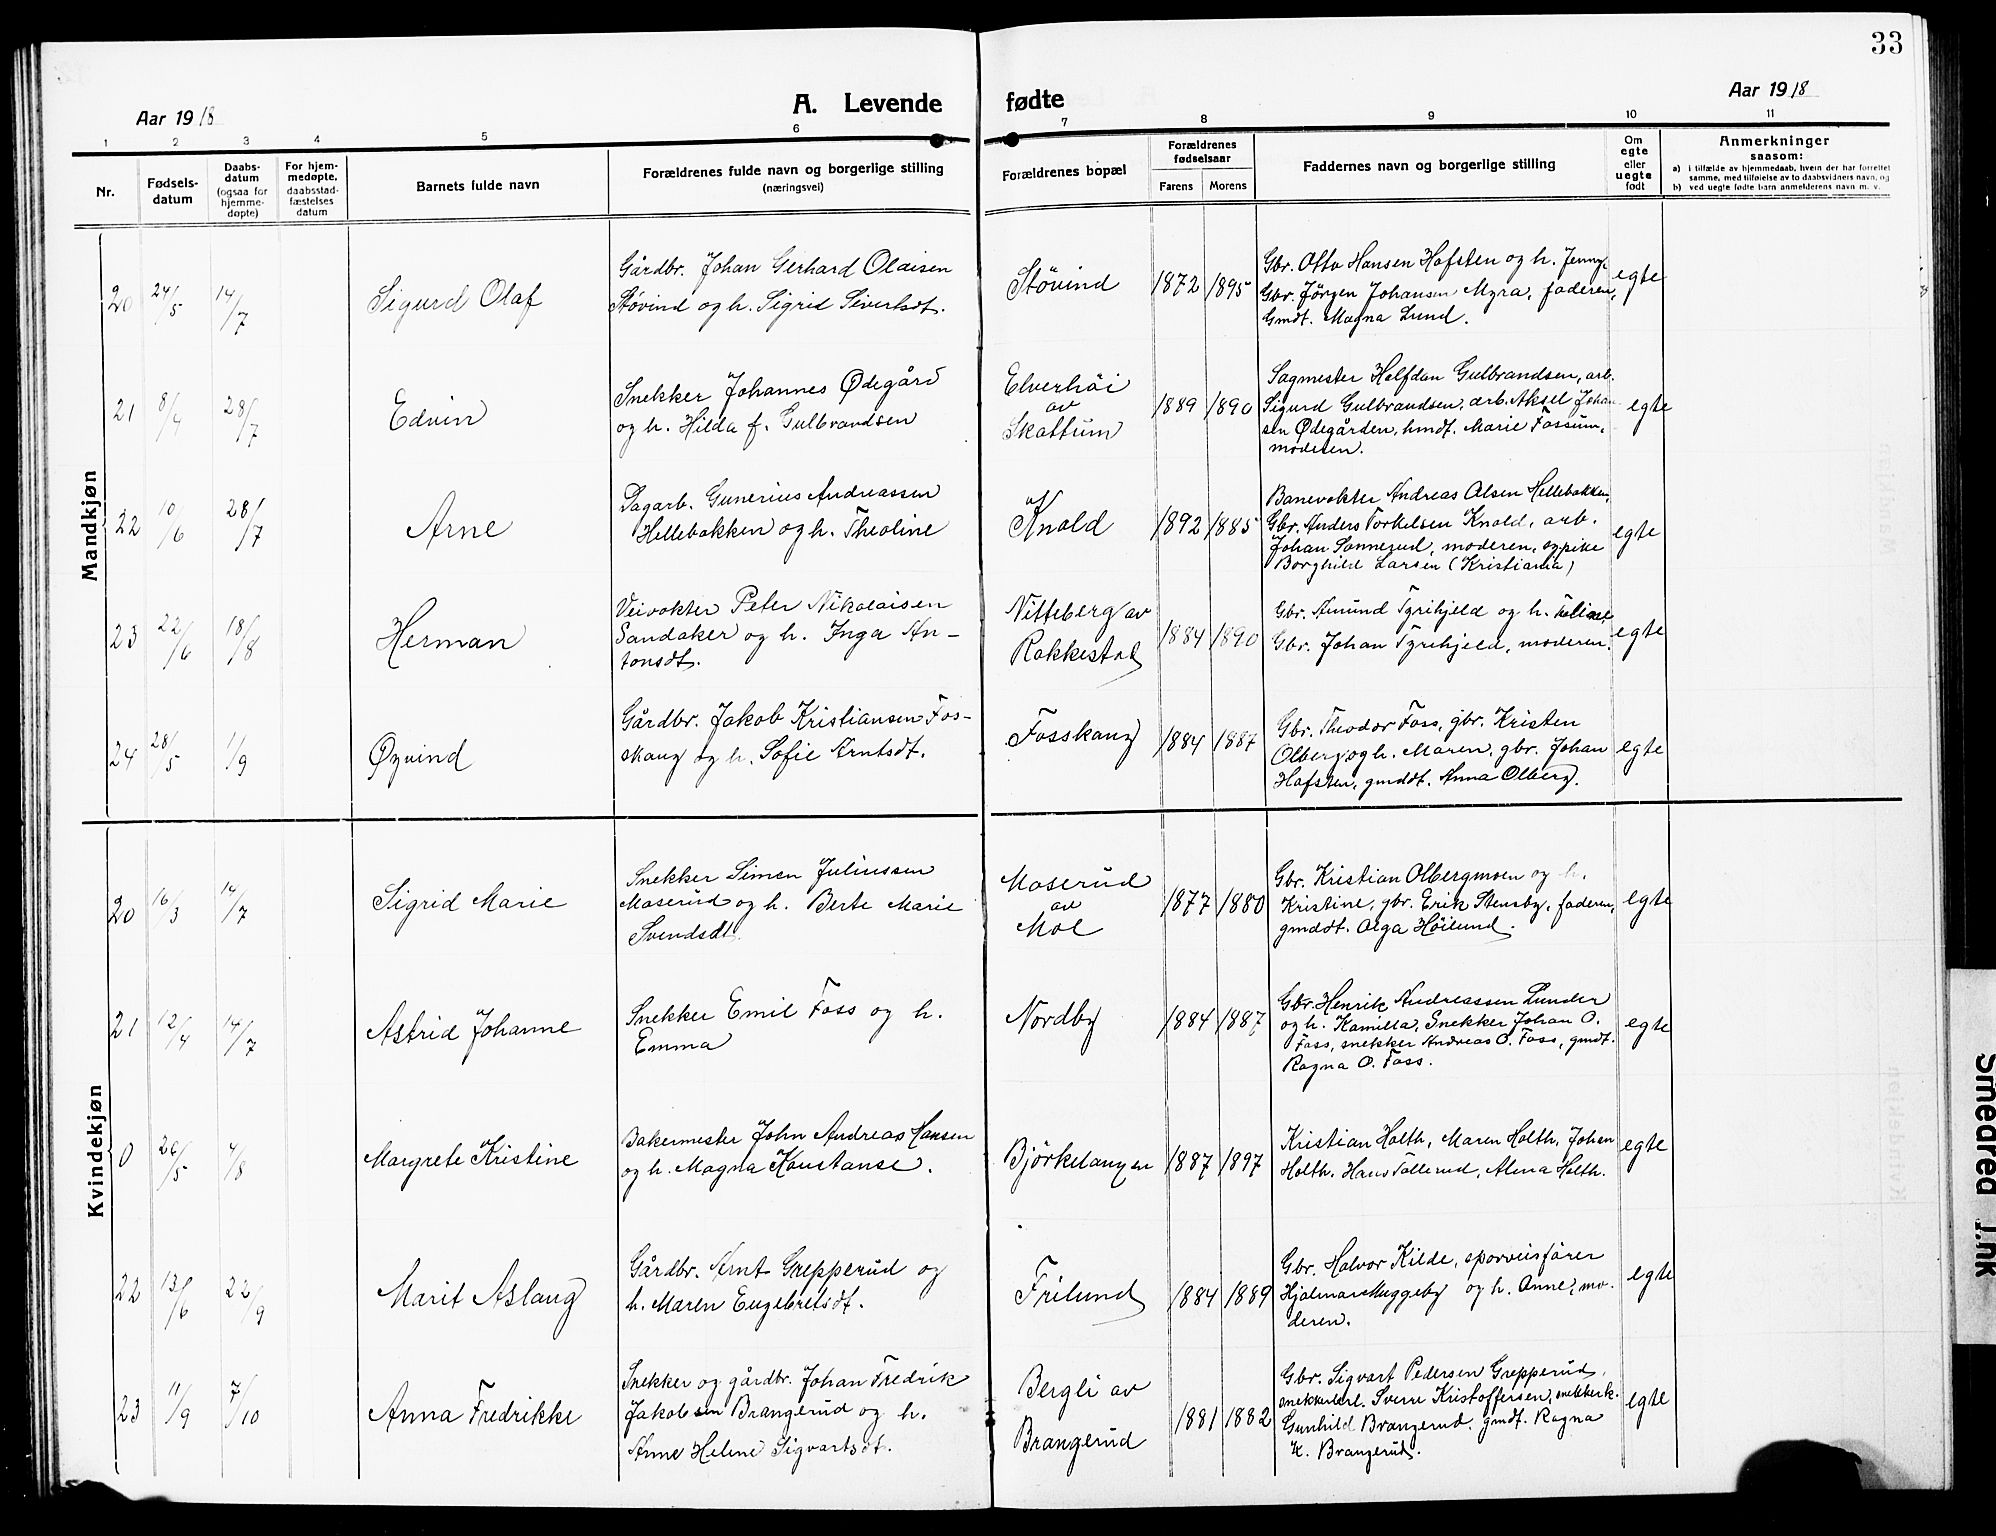 33
Aar 1918
A. Levende fødte
Aar 1918
1 2 3 4 5 6 7 8 9 10 11
Nr.
Fødsels-
datum
Daabs-
datum
(ogsaa for
hjemme-
døpte)
For hjem-
medøpte,
daabsstad-
fæstelses
datum
Barnets fulde navn
Forældrenes fulde navn og borgerlige stilling
(næringsvei)
Forældrenes bopæl
Forældrenes
fødselsaar
Farens Morens
Faddernes navn og borgerlige stilling
Om
egte
eller
uegte
født
Anmerkninger
saasom:
a) i tilfælde av hjemmedaab, hvem der har forrettet
samme, med tilføielse av to daabsvidners navn, og
b) ved uegte fødte barn anmelderens navn m. v.
Mandkjøn
20 24/5 14/7 Sigurd Olaf
Gårdbr. Johan Gerhard Olaisen
Støvind og h. Sigrid Sivertsdt.
Støvind 1872 1895
Gbr. Otto Hansen Hafsten og h. Jenny,
Gbr. Jörgen Johansen Myra, faderen,
Gmdt. Magna Lund.
egte
21 8/4 28/7 Edvin
Snekker Johannes Ødegård
og h. Hilda f. Gulbrandsen
Elverhöi
av
Skattum
1889 1890
Sagmester Halfdan Gulbrandsen, arb.
Sigurd Gulbrandsen, arb. Aksel Johan
sen Ødegården, hmdt. Marie Fossum,
moderen.
egte
22 10/6 28/7 Arne
Dagarb. Gunerius Andreassen
Hellebakken og h. Theoline
Knold 1892 1885
Banevokter Andreas Olsen Hellebakken,
Gbr. Anders Torkelsen Knold, arb.
Johan Sannerud, moderen, sypike
Borghild Larsen (Kristiania)
egte
23 22/6 18/8 Herman
Veivokter Peter Nikolaisen
Sandaker og h. Inga An-
tonsdt.
Nitteberg av
Rakkestad
1884 1890
Gbr. Amund Tyrihjeld og h.
Gbr. Johan Tyrihjeld, moderen.
egte
24 28/5 1/9 Øyvind
Gårdbr. Jakob Kristiansen Fos-
skaug og h. Sofie Arntsdt.
Fosskaug 1884 1887
Gbr. Theodor Foss, gbr. Kristen
Olberg og h. Maren, gbr. Johan
Hafsten, gmddt. Anna Olberg.
egte
Kvindekjøn
20 16/3 14/7 Sigrid Marie
Snekker Simen Juliussen
Maserud og h. Berte Marie
Svendsdt.
Maserud
av
Mol
1877 1880
Gbr. Kristian Olbergmoen og h.
Kristine, gbr. Erik Stensby, faderen,
gmddt. Olga Höilund.
egte
21 12/4 14/7 Astrid Johanne
Snekker Emil Foss og h.
Emma
Nordby 1884 1887
Gbr. Henrik Andreassen Lunder
og h. Kamilla, Snekker Johan O.
Foss, snekker Andreas O. Foss, gmdt.
Ragna O. Foss.
egte
0 26/5 4/8 Margrete Kristine
Bakermester John Andreas Hansen
og h. Magna Konstanse.
Björkelangen 1887 1897
Kristian Holth, Maren Holth, Johan
Holth. Hans Tollerud, Alma Holth.
egte
22 13/6 22/9 Marit Aslaug
Gårdbr. Arnt Grepperud og
h. Maren Engebretsdt.
Frilund 1884 1889
Gbr. Halvor Kilde, sporveisfører
Hjalmar Muggeby og h. Anne, mo-
deren.
egte
23 11/9 7/10 Anna Fredrikke
Snekker og gårdbr. Johan Fredrik
Jakobsen Brangerud og h.
Anne Helene Sigvartsdt.
Bergli av
Brangerud
1881 1882
Gbr. Sigvart Pedersen Grepperud,
snekkerl. Sverre Kristoffersen, snekkerk.
Gunhild Brangerud, gmdt. Ragna
K. Brangerud.
egte